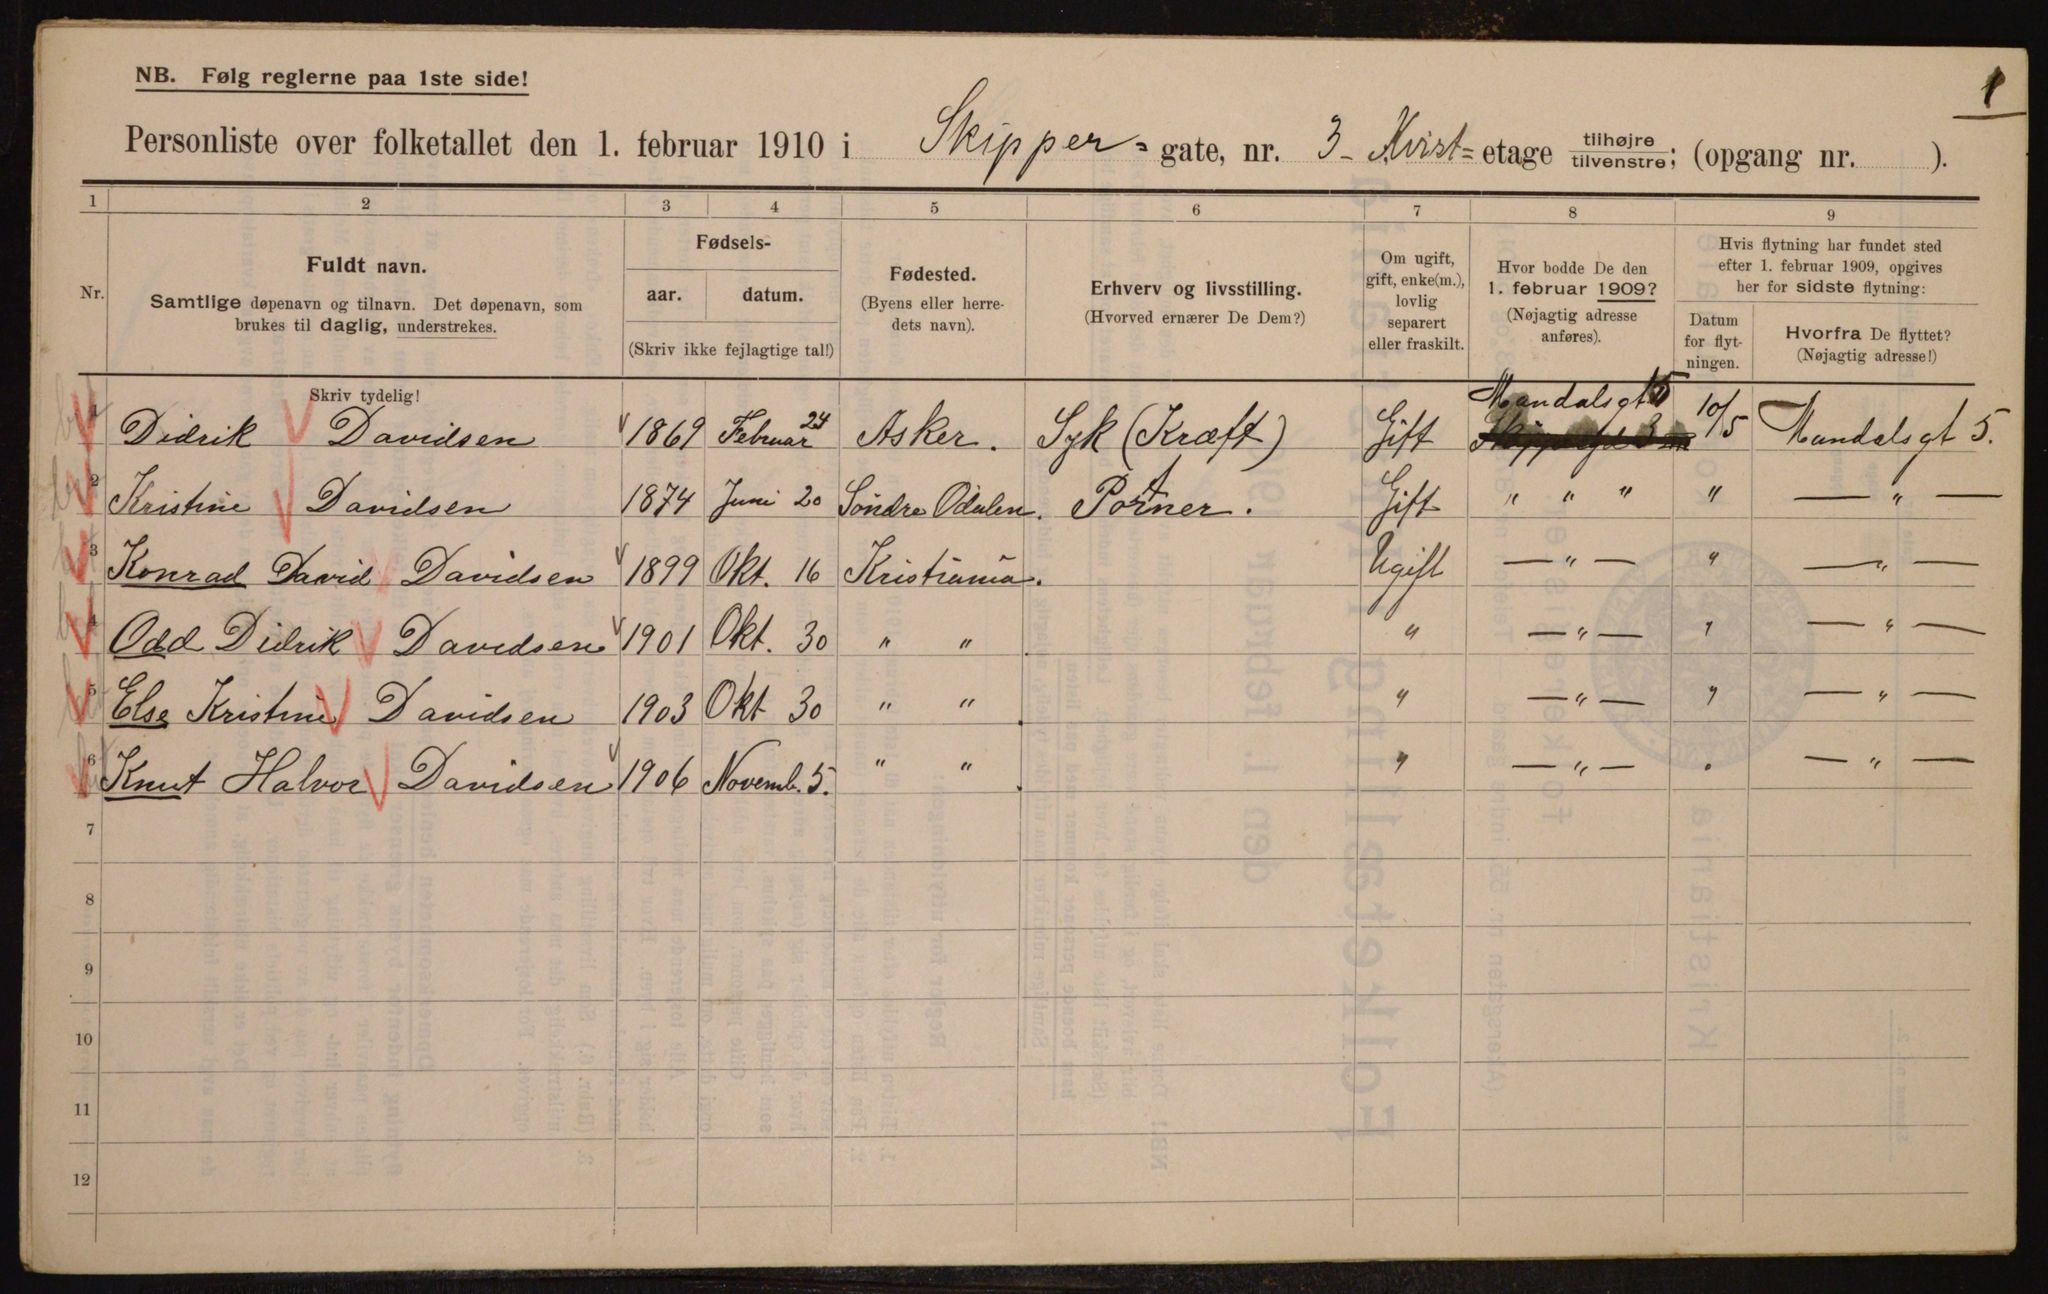 NB. Følg reglerne paa 1ste side!
1
Personliste over folketallet den 1. februar 1910 i Skipper- gate, nr. 3 - Kvist= etage tilhøjre tilvenstre; (opgang nr. ).
1 2 3 4 5 6 7 8 9
Nr.
Fuldt navn.
Samtlige døpenavn og tilnavn. Det døpenavn, som
brukes til daglig, understrekes.
Skriv tydelig!
Fødsels-
aar. datum.
(Skriv ikke fejlagtige tal!)
Fødested.
(Byens eller herre-
dets navn).
Erhverv og livsstilling.
(Hvorved ernærer De Dem?)
Om ugift,
gift, enke(m.),
lovlig
separert
eller fraskilt.
Hvor bodde De den
1. februar 1909?
(Nøjagtig adresse
anføres).
Hvis flytning har fundet sted
efter 1. februar 1909, opgives
her for sidste flytning:
Datum
for flyt-
ningen.
Hvorfra De flyttet?
(Nøjagtig adresse!)
1 Didrik Davidsen 1869 Februar 24 Asker. Syk (Kræft) Gift Mandalsgt 5 10/5 Mandalsgt 5.
2 Kristine Davidsen 1874 Juni 20 Søndre Odalen. Gift " " " " — " —
3 Konrad David Davidsen 1899 Okt. 16 Kristiania. Ugift — " — " — " —
4 Odd Didrik Davidsen 1901 Okt. 30 " " " — " — " — " —
5 Else Kristine Davidsen 1903 Okt 30 " " " — " — " — " —
6 Knut Halvor Davidsen 1906 Novemb. 5. " " " — " — " — " —
7
8
9
10
11
12